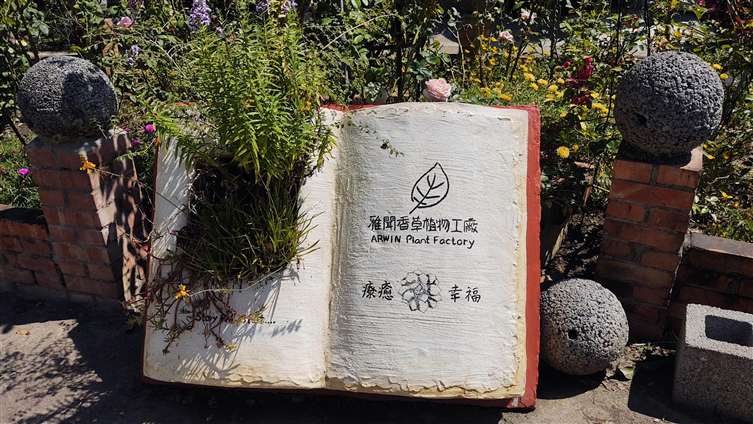 雅聞香草植物工廠
ARWIN Plant Factory
療癒 幸福